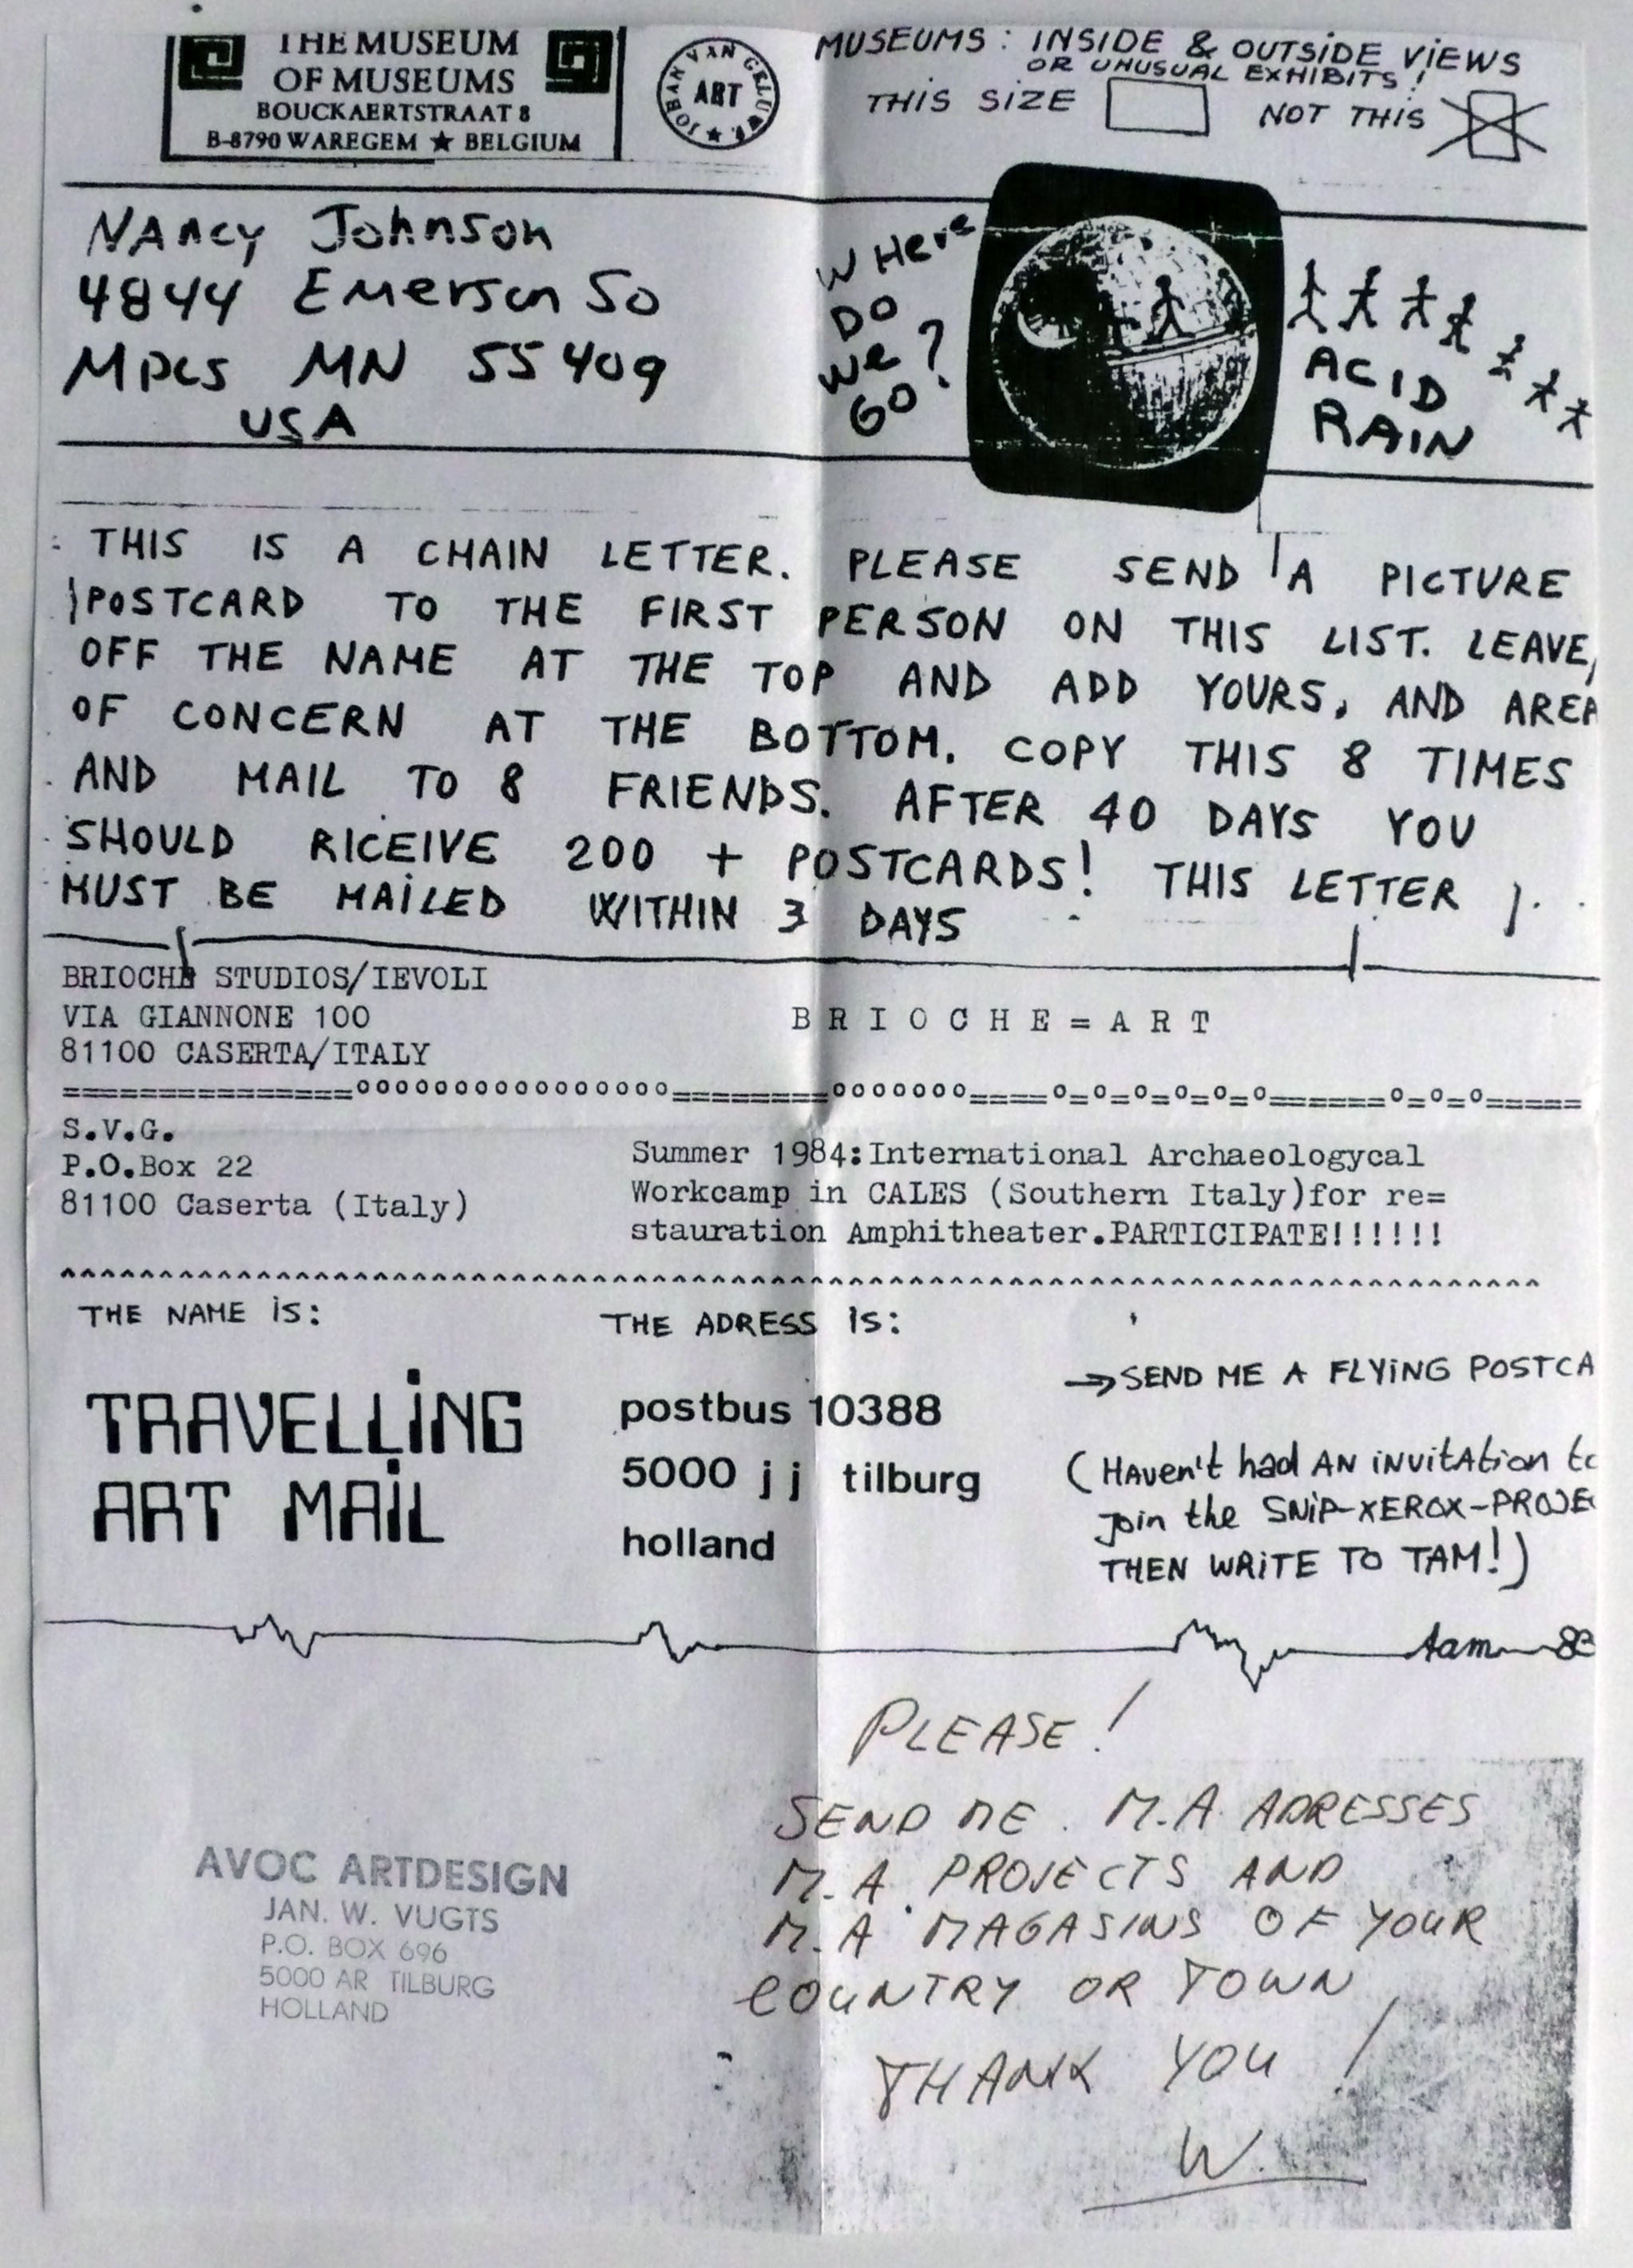 THE MUSEUM
OF MUSEUMS
BOUCKAERTSTRAAT 8
B-8790 WAREGEM ★ BELGIUM
JOHAN VAN GELUWE
ART
MUSEUMS: INSIDE & OUTSIDE VIEWS
OR UNUSUAL EXHIBITS!
THIS SIZE NOT THIS
NANCY Johnson
4844 Emerson So
MPLS MN 55409
USA
WHere
DO
we ?
GO
ACID
RAIN
THIS IS A CHAIN LETTER. PLEASE SEND A PICTURE
POSTCARD TO THE FIRST PERSON ON THIS LIST. LEAVE,
OFF THE NAME AT THE TOP AND ADD YOURS, AND AREA
OF CONCERN AT THE BOTTOM. COPY THIS 8 TIMES
AND MAIL TO 8 FRIENDS. AFTER 40 DAYS YOU
SHOULD RICEIVE 200 + POSTCARDS! THIS LETTER
MUST BE MAILED WITHIN 3 DAYS
BRIOCHE STUDIOS/IEVOLI
VIA GIANNONE 100
81100 CASERTA/ITALY
BRIOCHE=ART
===============ooooooooooooooooo========ooooooo====o=o=o=o=o=o======o=o=o=====
S.V.G.
P.O.Box 22
81100 Caserta (Italy)
Summer 1984:International Archaeologycal
Workcamp in CALES (Southern Italy)for re=
stauration Amphitheater.PARTICIPATE!!!!!!
THE NAME iS:
TRAVELLiNG
ART MAiL
THE ADRESS iS:
postbus 10388
5000 j j tilburg
holland
→SEND ME A FLYiNG POSTCA
(HAven't had AN iNVitAtion to
join the SNiP-XEROX-PROJE
THEN WRiTE TO TAM!)
tam 83
PLEASE!
SEND ME. M.A. ADRESSES
M.A. PROJECTS AND
M.A MAGASINS OF YOUR
COUNTRY OR TOWN
THANK YOU!
W.
AVOC ARTDESIGN
JAN. W. VUGTS
P.O. BOX 696
5000 AR TILBURG
HOLLAND